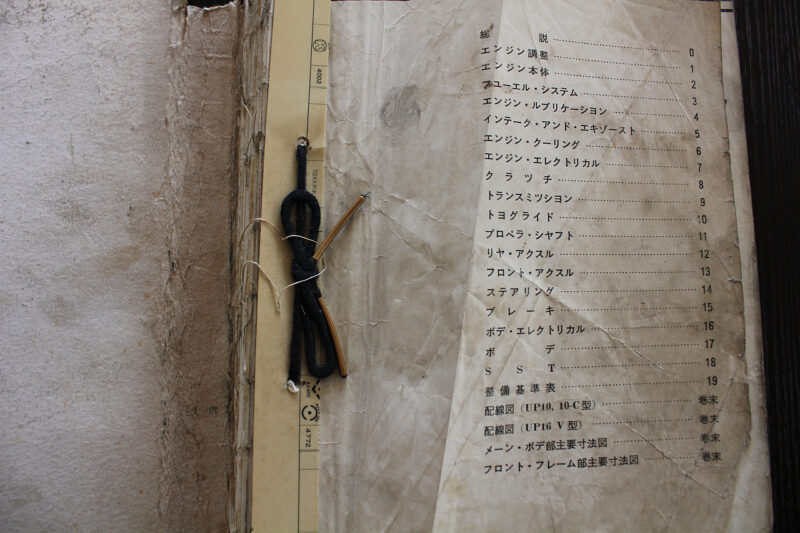 4002
TOKER
4772
総 説 0
エンジン調整 1
エンジン本体 2
フユーエル・システム 3
エンジン・ルブリケーション 4
インテーク・アンド・エキゾースト 5
エンジン・クーリング 6
エンジン・エレクトリカル 7
クラツチ 8
トランスミツシヨン 9
トヨグライド 10
プロペラ・シヤフト 11
リヤ・アクスル 12
フロント・アクスル 13
ステアリング 14
ブレーキ 15
ボデ・エレクトリカル 16
ボデ 17
SST 18
整備基準表 19
配線図（UP10, 10-C型） 巻末
配線図（UP16 V型） 巻末
メーン・ボデ部主要寸法図 巻末
フロント・フレーム部主要寸法図 巻末